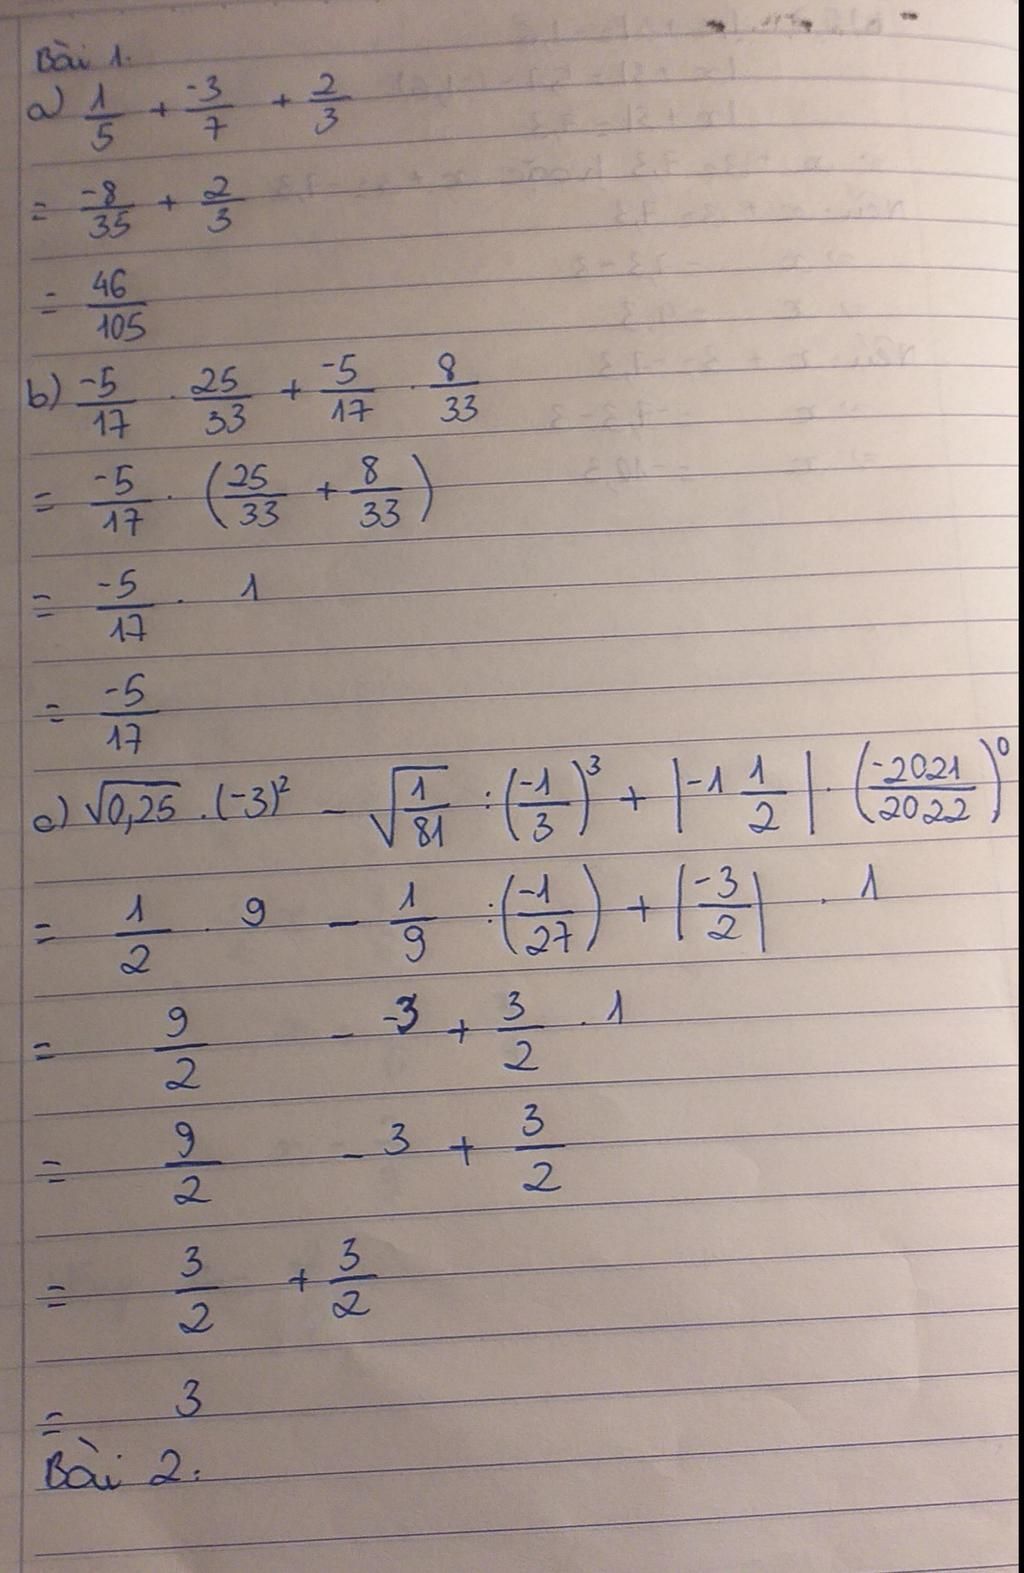 Bài 1.
a) 1/5 + -3/7 + 2/3
= -8/35 + 2/3
= 46/105
b) -5/17 . 25/33 + -5/17 . 8/33
= -5/17 . (25/33 + 8/33)
= -5/17 . 1
= -5/17
c) √0,25 . (-3)² - √(1/81) : (-1/3)³ + |-1 1/2| . (-2021/2022)⁰
= 1/2 . 9 - 1/9 : (-1/27) + |-3/2| . 1
= 9/2 - -3 + 3/2 . 1
= 9/2 - 3 + 3/2
= 3/2 + 3/2
= 3
Bài 2: